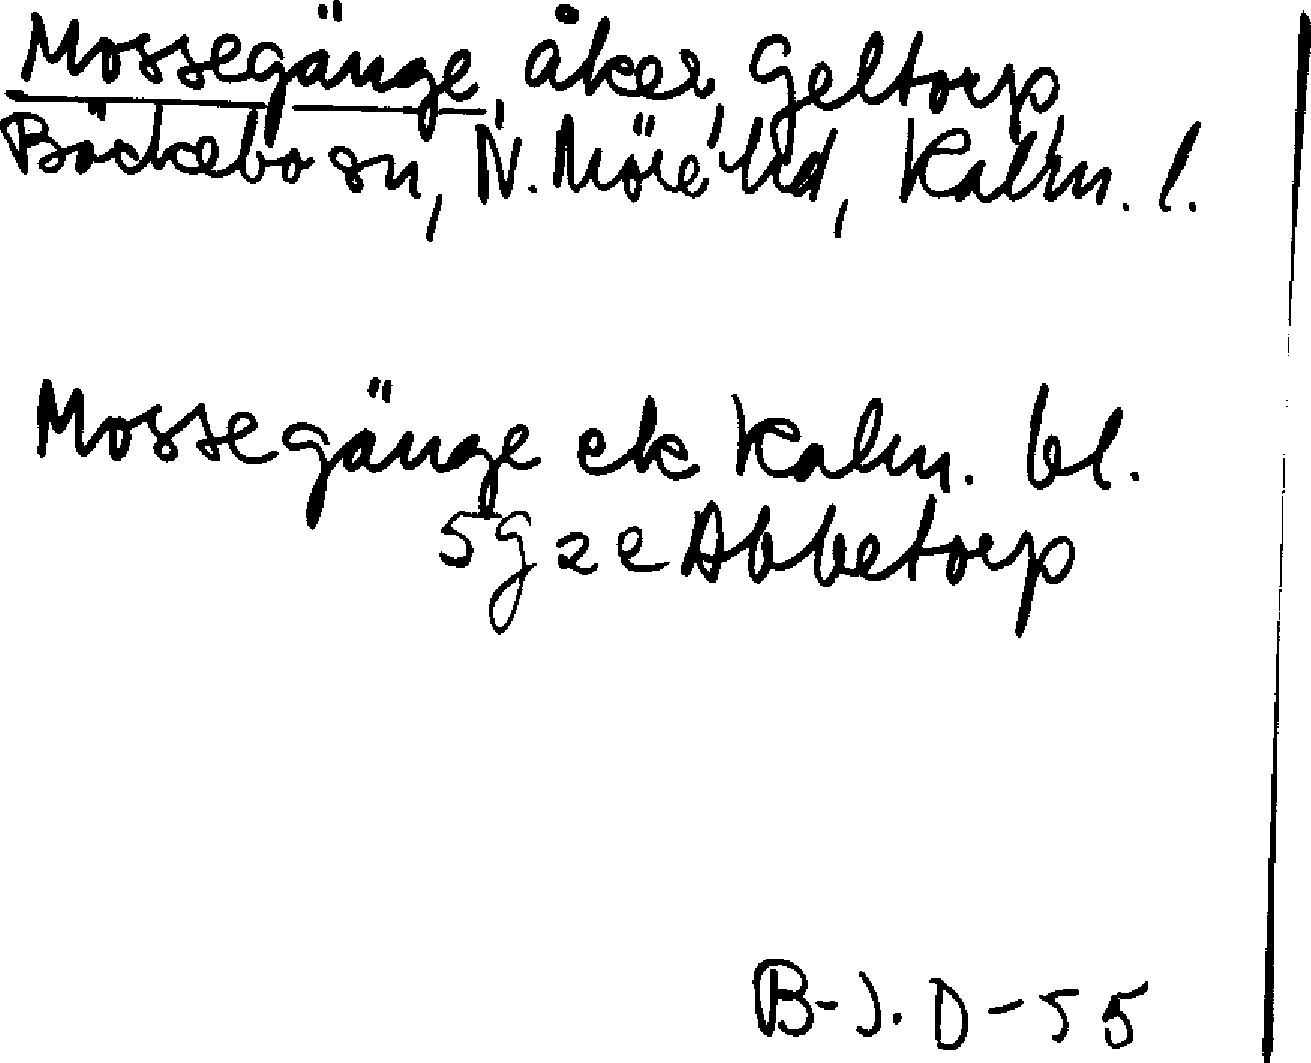 Mossegänge, åker, Geltorp,
Bäckebo sn, N. Möre hd, Kalm. l.
Mossegänge ek Kalm. bl.
5g2e Abbetorp
B-J. D-55